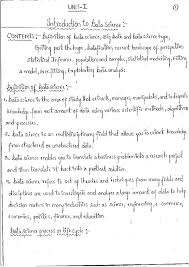 UNIT-I
①
Introduction to Data Science :-
CONTENTS :- Definition of data science, Big data and Data Science hype,
Getting past the hype, Datafication, Current landscape of perspective
Statistical Inference, population and samples, statistical modelling, fitting
a model, over fitting, Exploratory Data Analysis.
Definition of Data Science :-
Data Science is the area of study that extracts, manages, manipulates, and interprets
knowledge from vast amount of data using various scientific methods, algorithms
and processes.
Data Science is a multidisciplinary field that allows you to extract knowledge
from structured or unstructured data.
Data Science enables you to translate a business problem into a research project
and then translate it back into a practical solution.
Data Science refers to set of theories and techniques from many fields and
disciplines are used to investigate and analyse a large amount of data to help
decision makers in many industries such as science, engineering,
economics, politics, finance, and education
Data Science process or life cycle :-